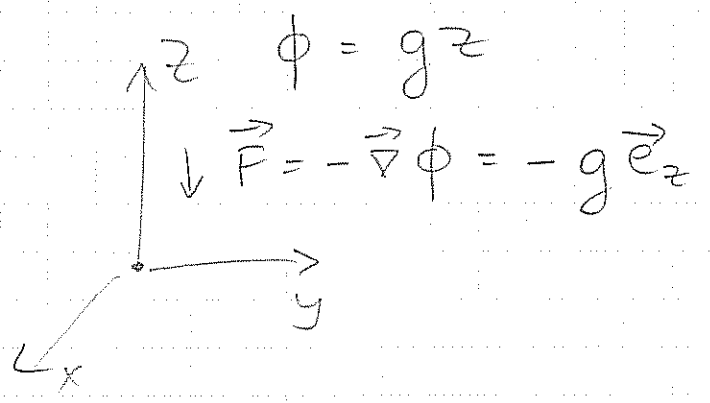 z ϕ = gz
↓ F⃗ = - ∇⃗ϕ = - g e⃗_z
y
x